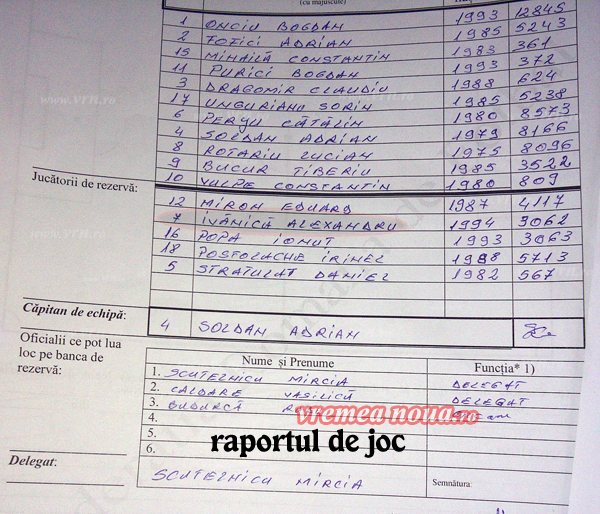 (cu majuscule)
1 ONCIU BOGDAN 1993 12845
2 FOTICI ADRIAN 1985 5243
15 MIHAILĂ CONSTANTIN 1983 361
11 PURICI BOGDAN 1993 372
3 DRAGOMIR CLAUDIU 1988 624
17 UNGURIANU SORIN 1985 5238
6 PERJU CĂTĂLIN 1980 8573
4 SOLDAN ADRIAN 1979 8166
8 ROTARIU LUCIAN 1975 8096
9 BUCUR TIBERIU 1985 3522
10 VULPE CONSTANTIN 1980 809
Jucătorii de rezervă:
12 MIRON EDUARD 1987 4117
7 IVĂNICĂ ALEXANDRU 1994 9062
16 POPA IONUT 1993 3063
18 POSTOLACHE IRINEL 1988 5713
5 STRATULAT DANIEL 1982 567
Căpitan de echipă:
4 SOLDAN ADRIAN
Oficialii ce pot lua
loc pe banca de
rezervă:
Nume și Prenume Funcția* 1)
1. SCUTELNICU MIRCIA DELEGAT
2. CALDARE VASILICĂ DELEGAT
3. BUDURCĂ
4.
5.
6.
vremea noua.ro
raportul de joc
Delegat:
SCUTELNICU MIRCIA
Semnătura:
www.VTH.ro
www.VTH.ro